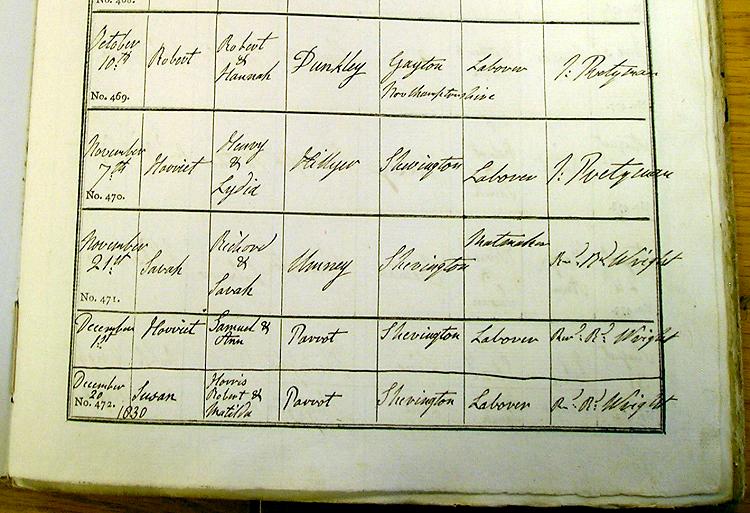 October
10.th
No. 469.
Robert
Robert
&
Hannah
Dunkley
Gayton
Northamptonshire
Labourer
J: Pretyman
November
7.th
No. 470.
Harriet
Henry
&
Lydia
Hillyer
Shevington
Labourer
J: Pretyman
November
21.st
No. 471.
Sarah
Richard
&
Sarah
Umney
Shevington
Matmaker
Rev.d R.d Wright
December
1.st
Harriet
Samuel &
Ann
Parrot
Shevington
Labourer
Rev.d R.d Wright
December
20
No. 472.
1830
Susan
Harris
Robert &
Matilda
Parrot
Shevington
Labourer
Rev.d R.d Wright